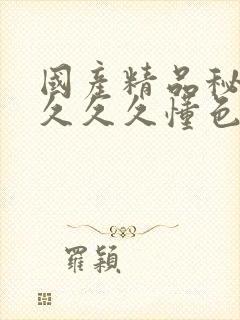 國產精品秘
久久久懂色
羅穎